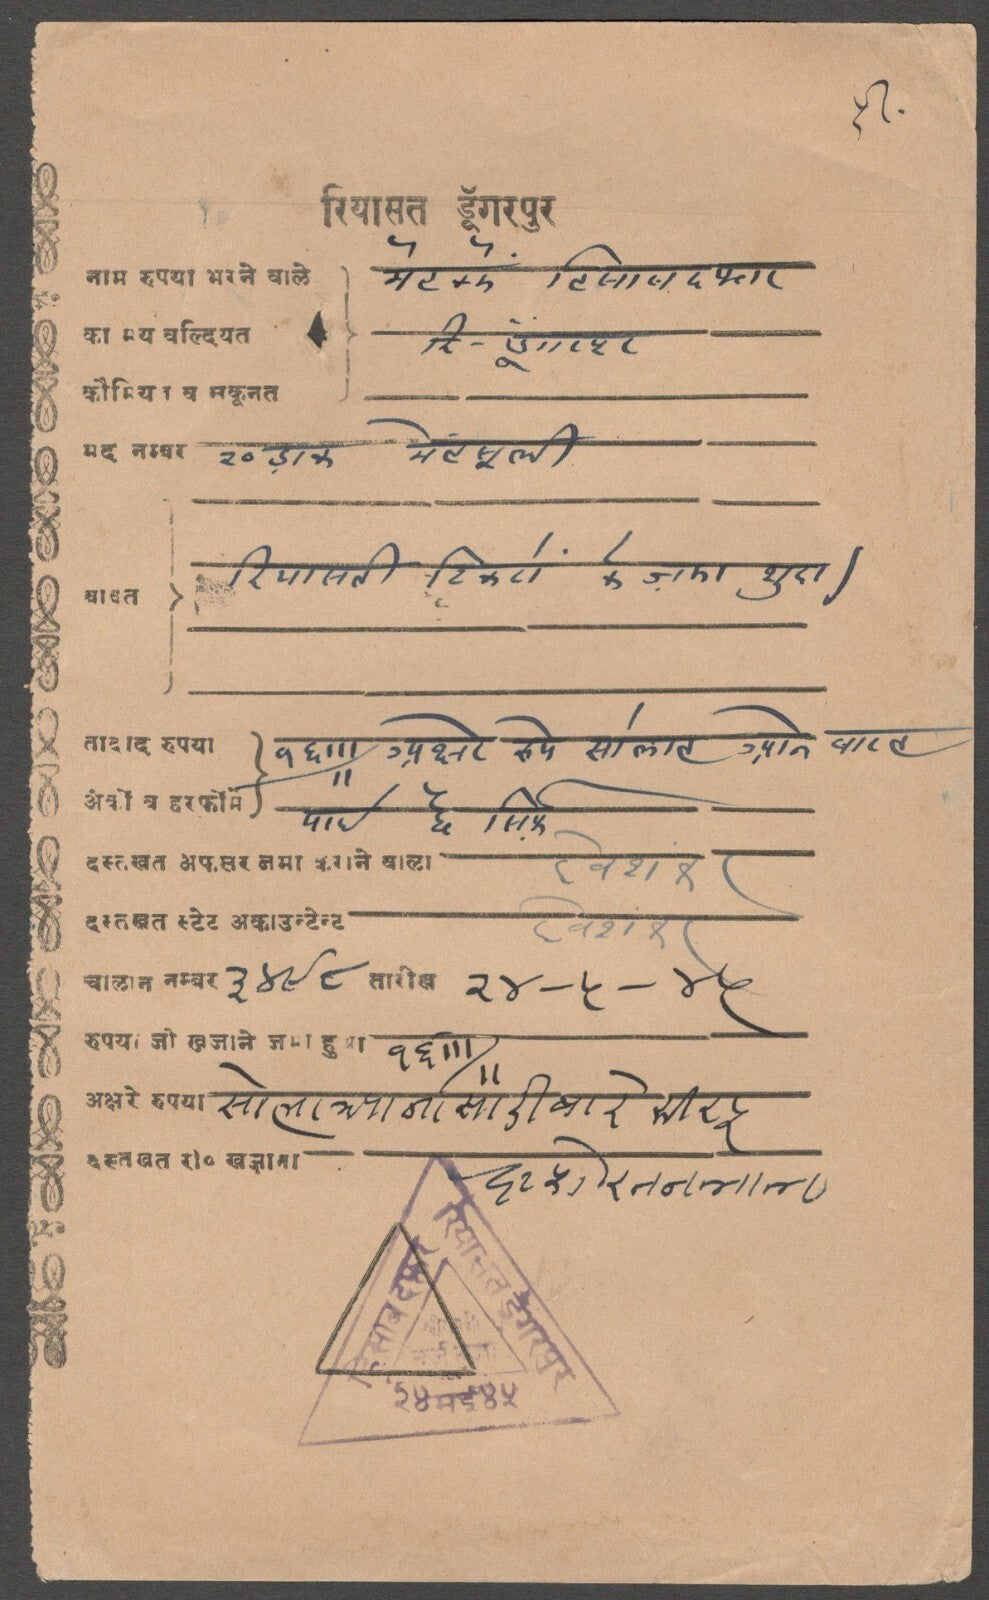 रियासत डूँगरपुर
नाम रुपया भरने वाले
का मय वल्दियत
रि - डूंगरपुर
कौमियत व सकूनत
मद नम्बर २० डाक
बाबत रियासती टिकटों के जमा शुदा
तादाद रुपया १६।।। अक्षरे रुपे सोलाह आने बारह
अंकों व हरफोंमें पाई छै सिर्फ
दस्तखत अफसर जमा कराने वाला
दस्तखत स्टेट अकाउन्टेन्ट
चालान नम्बर ३४९८ तारीख २४-५-४५
रुपया जो खजाने जमा हुवा १६।।।
अक्षरे रुपया सोला आना साडीबारे
दस्तखत रा० खजाना
हिसाब दफ्तर
रियासत डूँगरपुर
२४ मई ४५